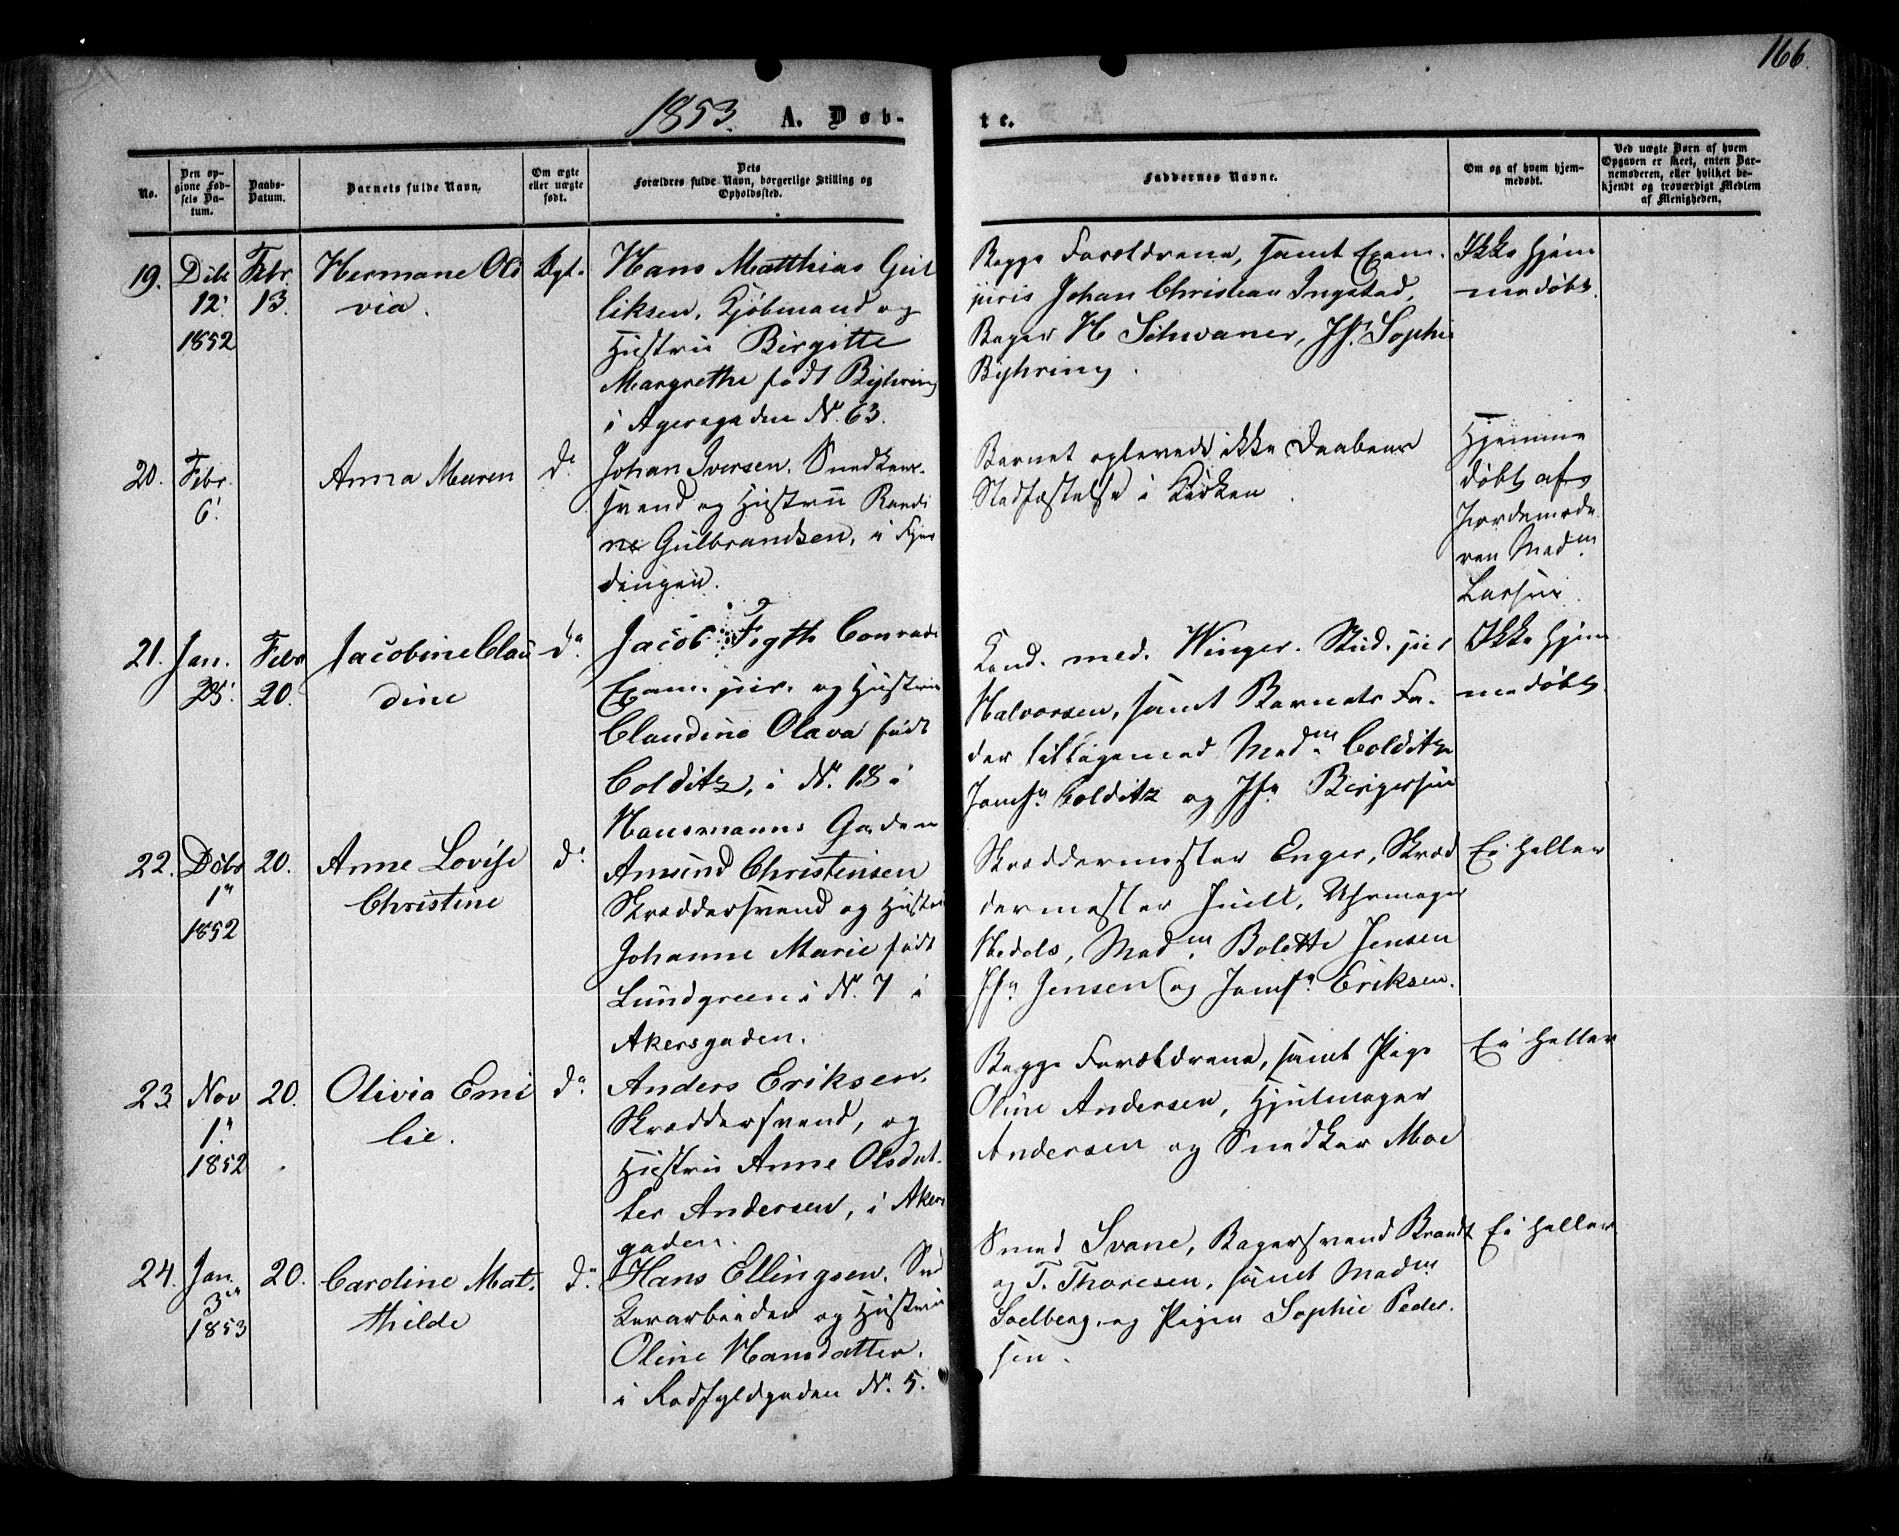 166.
1853. A. Døb-
te.
No.
Den op-
givne Fød-
sels Da-
tum.
Daabs-
Datum.
Barnets fulde Navn.
Om ægte
eller uægte
født.
Dets
Forældres fulde Navn, borgerlige Stilling og
Opholdssted.
Faddernes Navne.
Om og af hvem hjem-
medøbt.
Ved uægte Børn af hvem
Opgaven er skeet, enten Bar-
nemoderen, eller hvilket be-
kjendt og troværdigt Medlem
af Menigheden.
19. Dcbr
12.
1852
Febr.
13.
Hermane Oli
via.
Ægt.
Hans Matthias Gul
liksen, Kjøbmand og
Hustru Birgitte
Margrethe født Byhring
i Agersgaden N. 63.
Begge Forældrene, samt Exam.
juris Johan Christian Ingstad,
Bager H Schwaner, Jfr. Sophie
Byhring.
Ikke hjem
medøbt.
20. Febr.
6.
Anna Maren
do
Johan Iversen. Snedker-
svend og Hustru Randi
ne Gulbrandsen, i Fjer
dingen.
Barnet oplevede ikke Daabens
Stadfæstelse i Kirken.
Hjemme
døbt af
Jordemode
ren Madm
Larsen.
21. Jan.
25.
Febr
20.
Jacobine Clau
dine
do
Jacob Fogth Conradi
Exam. jur. og Hustru
Claudine Olava født
Colditz, i N. 18 i
Hausmanns Gaden
Kand. med. Winger. Stud. jur
Halvorsen, samt Barnets Fa-
der tilligemed Madm Colditz
Jomfr Colditz og Jfr Birgersen
Ikke hjem
medøbt
22. Dcbr
1
1852
20.
Anne Lovise
Christine
do
Amund Christensen
Skræddersvend og Hustru
Johanne Marie født
Lundgreen i N. 7 i
Akersgaden.
Skræddermester Enger, Skræd
dermester Juell, Uhrmager
Hedels, Madm Bolette Jensen
Jfr Jensen og Jomfr Eriksen.
Ei heller
23. Nov
1.
1852
20.
Olivia Emi
lie.
do
Anders Eriksen.
Skræddersvend, og
Hustru Anne Olsdat-
ter Andersen, i Akers
gaden.
Begge Forældrene, samt Pige
Oline Andersen, Hjulmager
Andersen og Snedker Moe
Ei heller
24. Jan.
3
1853
20.
Caroline Mat-
thilde
do
Hans Ellingsen. Snd
kerarbeider og Hustru
Oline Hansdatter.
i Rødfyldgaden N. 5.
Smed Svane, Bagersvend Brandt
og T. Thoresen, samt Madm
Soelberg og Pigen Sophie Peder-
sen.
Ei heller